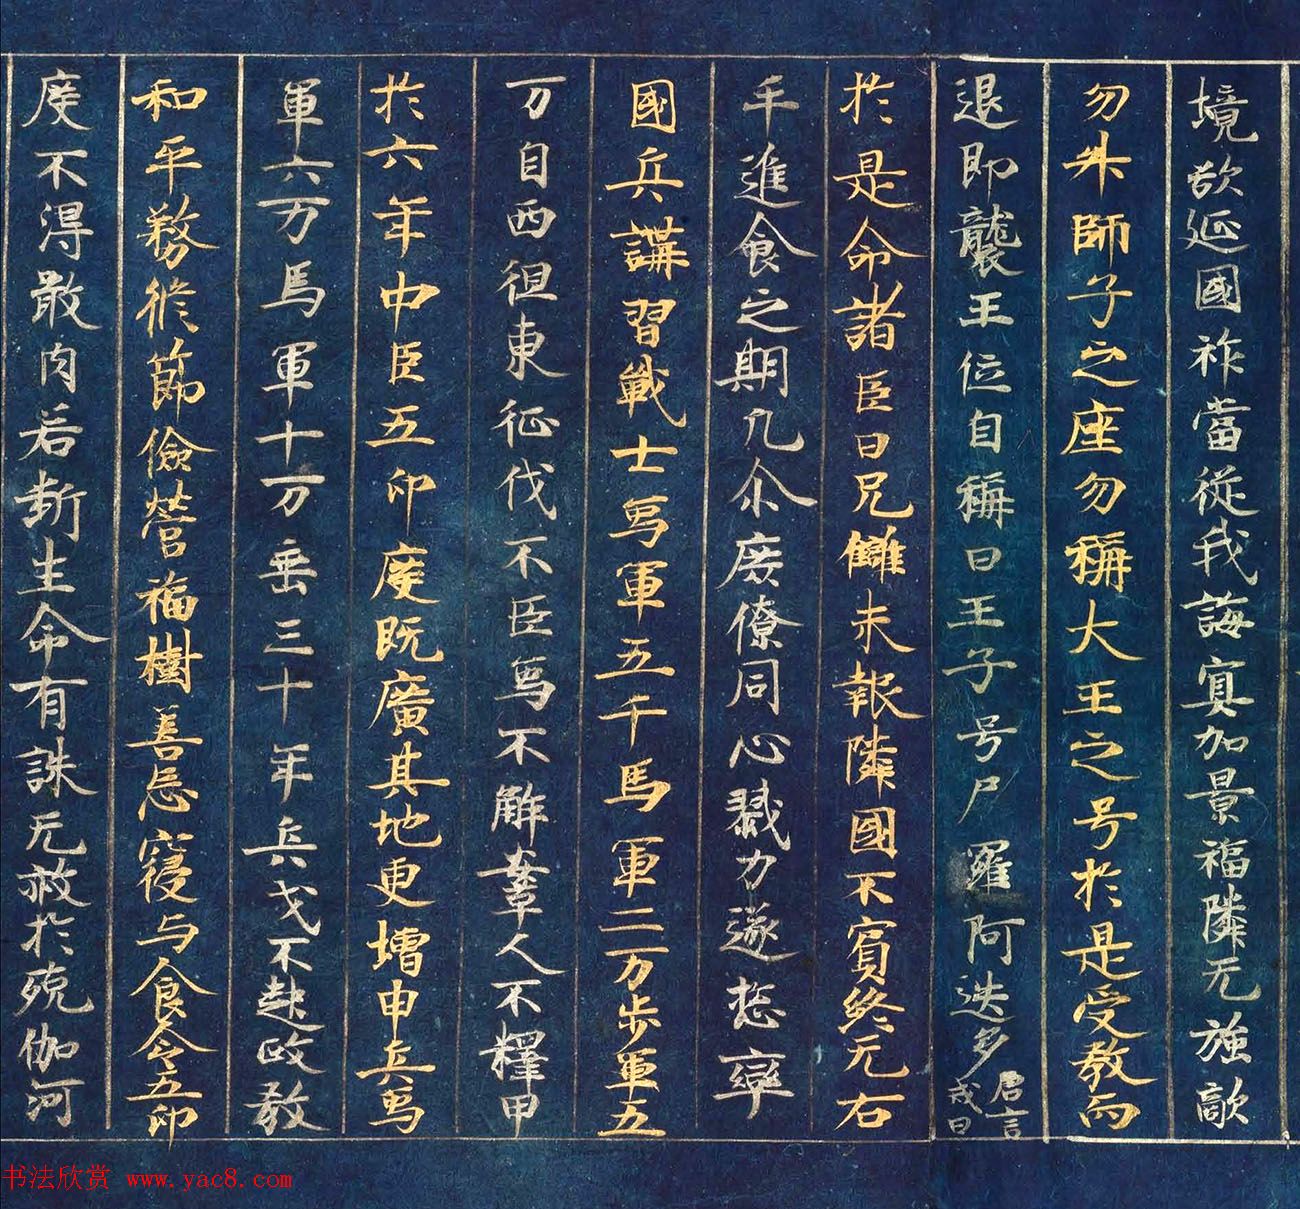 境欲延國祚當從我誨冥加景福隣无強敵
勿昇師子之座勿稱大王之号於是受教而
退即襲王位自稱曰王子号尸羅阿迭多唐言戒日
於是命諸臣曰兄讎未報隣國不賓終无右
手進食之期凡尒庶僚同心戮力遂惣率
國兵講習戰士馬軍五千馬軍二万步軍五
万自西徂東征伐不臣馬不解鞌人不釋甲
於六年中臣五印度既廣其地更增甲兵馬
軍六万馬軍十万垂三十年兵戈不起政教
和平務修節儉營福樹善忘寑与食令五印
度不得噉肉若斷生命有誅无赦於殑伽河
书法欣赏 www.yac8.com